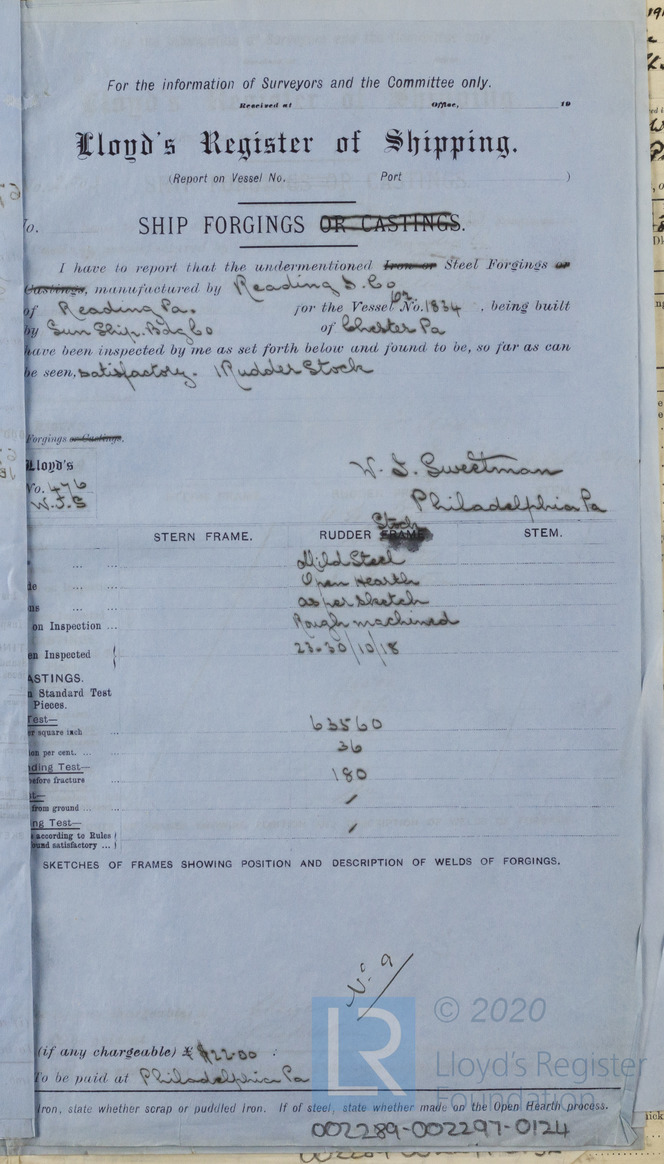 For the information of Surveyors and the Committee only.
Received at Office, 19
Lloyd's Register of Shipping.
(Report on Vessel No. Port )
SHIP FORGINGS OR CASTINGS.
I have to report that the undermentioned Iron or Steel Forgings or
Castings, manufactured by Reading S. Co
of Reading Pa. for the Vessel No. 1834 , being built
by Sun Ship. Bdg Co of Chester Pa
have been inspected by me as set forth below and found to be, so far as can
be seen, satisfactory. 1 Rudder Stock
Forgings or Castings.
Lloyd's
No. 476
W.J.S
W. J. Sweetman
Philadelphia Pa
STERN FRAME. RUDDER FRAME Stock STEM.
Mild Steel
Open Hearth
as per sketch
on Inspection ... Rough machined
en Inspected 23-30/10/18
ASTINGS.
n Standard Test
Pieces.
Test—
er square inch ... 63560
ion per cent. ... 36
ding Test—
before fracture ... 180
t—
from ground ...
ng Test—
s according to Rules
ound satisfactory ...
SKETCHES OF FRAMES SHOWING POSITION AND DESCRIPTION OF WELDS OF FORGINGS.
(if any chargeable) $22.00 :
To be paid at Philadelphia Pa
Iron, state whether scrap or puddled Iron. If of steel, state whether made on the Open Hearth process.
002289-002297-0124
LR
© 2020
Lloyd's Register
Foundation